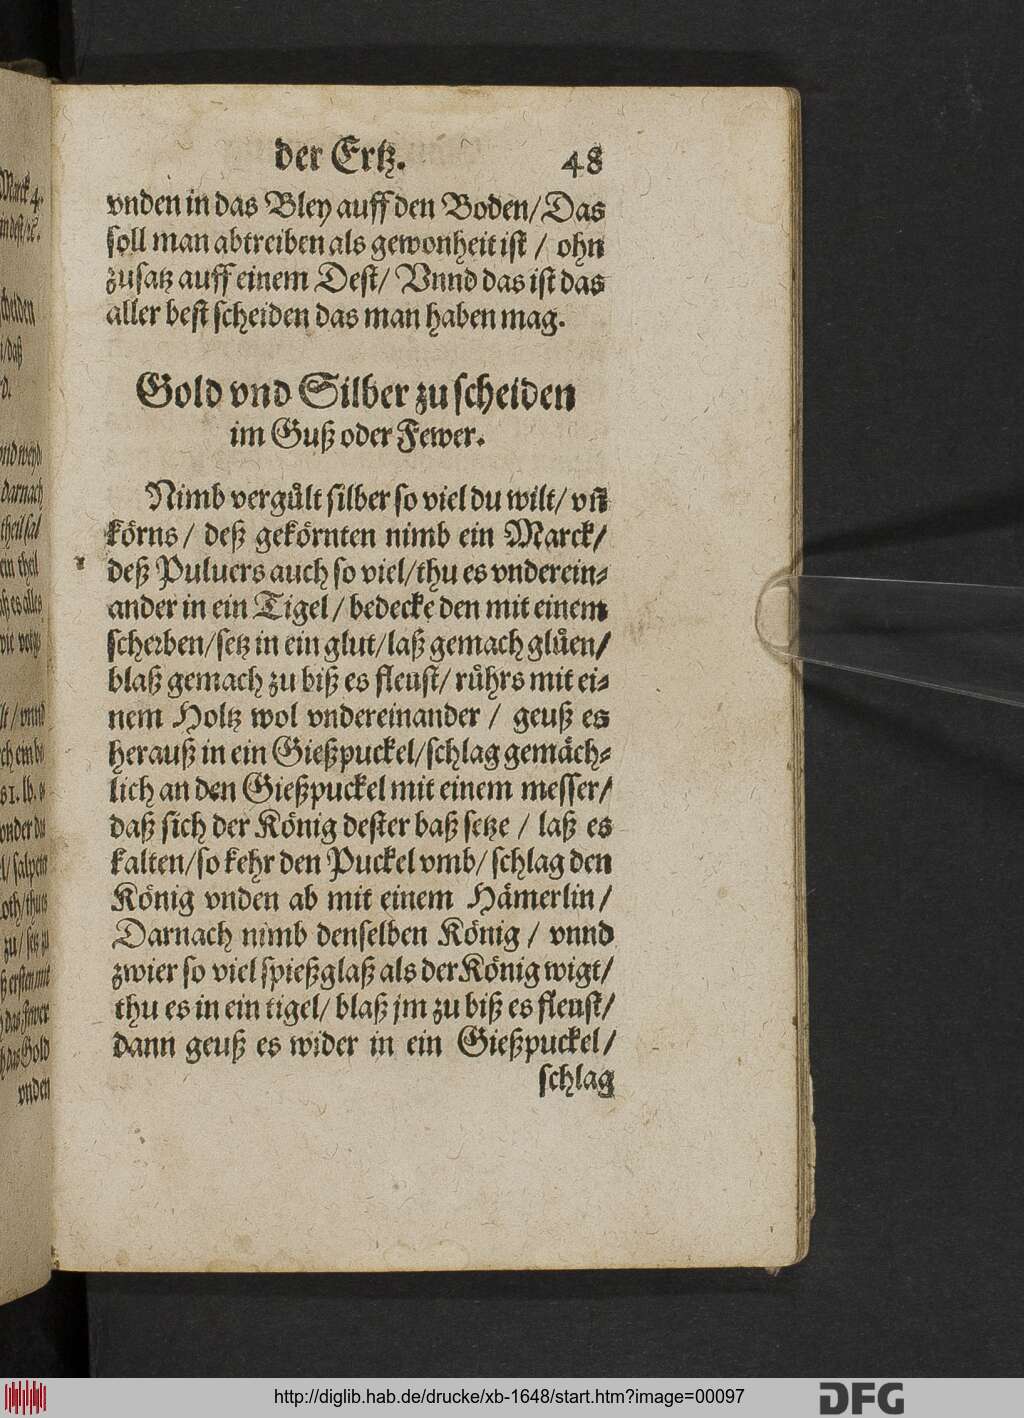 der Ertz. 48
vnden in das Bley auff den Boden/ Das
soll man abtreiben als gewonheit ist / ohn
zusatz auff einem Dest/ Vnnd das ist das
aller best scheiden das man haben mag.
Gold vnd Silber zu scheiden
im Guß oder Fewer.
Nimb vergült silber so viel du wilt/ vñ
körns / deß gekörnten nimb ein Marck/
deß Puluers auch so viel/ thu es vnderein⸗
ander in ein Tigel / bedecke den mit einem
scherben/ setz in ein glut/ laß gemach glüen/
blaß gemach zu biß es fleust/ rührs mit ei⸗
nem Holtz wol vndereinander / geuß es
herauß in ein Gießpuckel/ schlag gemäch⸗
lich an den Gießpuckel mit einem messer/
daß sich der König dester baß setze / laß es
kalten/ so kehr den Puckel vmb/ schlag den
König vnden ab mit einem Hämerlin/
Darnach nimb denselben König / vnnd
zwier so viel spießglaß als der König wigt/
thu es in ein tigel/ blaß jm zu biß es fleust/
dann geuß es wider in ein Gießpuckel/
schlag
http://diglib.hab.de/drucke/xb-1648/start.htm?image=00097
DFG